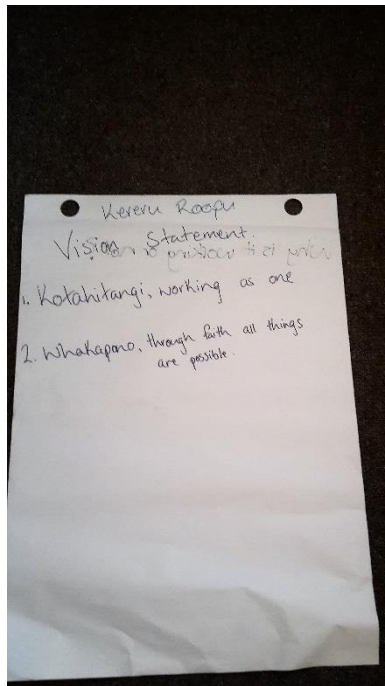 Kereru Roopu
Vision Statement.
1. Kotahitangi, working as one
2. Whakapono, through faith all things
are possible.